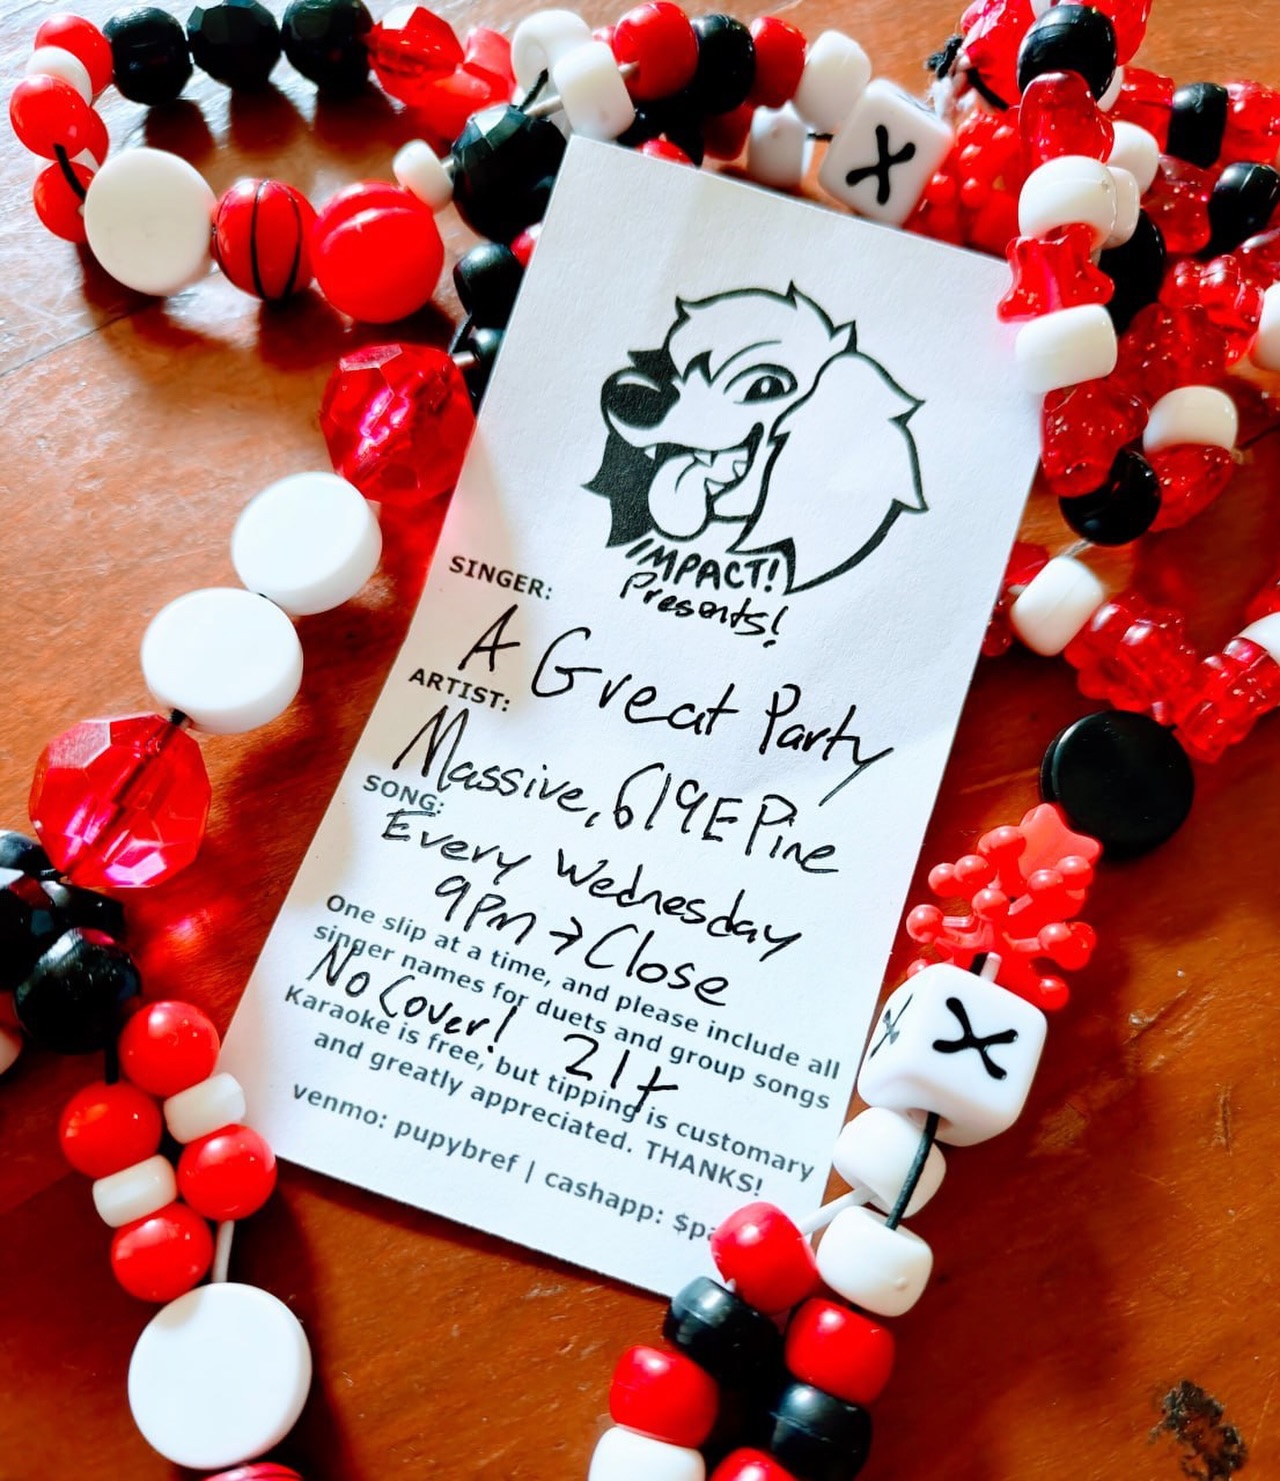 X
IMPACT!
Presents!
SINGER:
A Great Party
ARTIST:
Massive, 619 E Pine
SONG:
Every Wednesday
9PM → Close
One slip at a time, and please include all
singer names for duets and group songs
No Cover! 21+
Karaoke is free, but tipping is customary
and greatly appreciated. THANKS!
venmo: pupybref | cashapp:
X
X